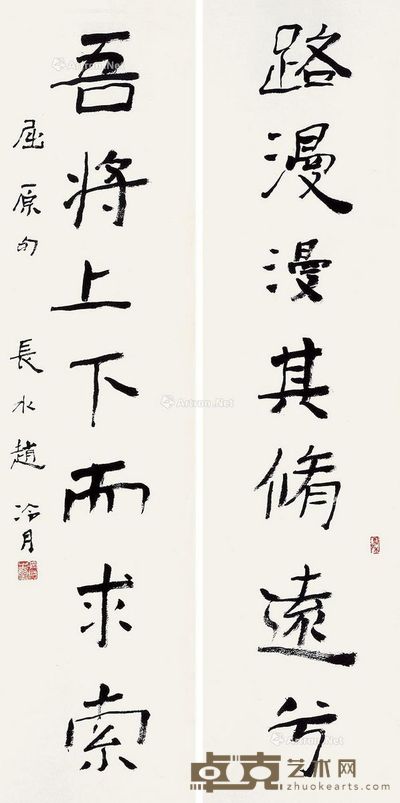 路漫漫其脩遠兮
吾将上下而求索
屈原句 長水趙冷月
Artron.Net
卓克艺术网
zhuokearts.com